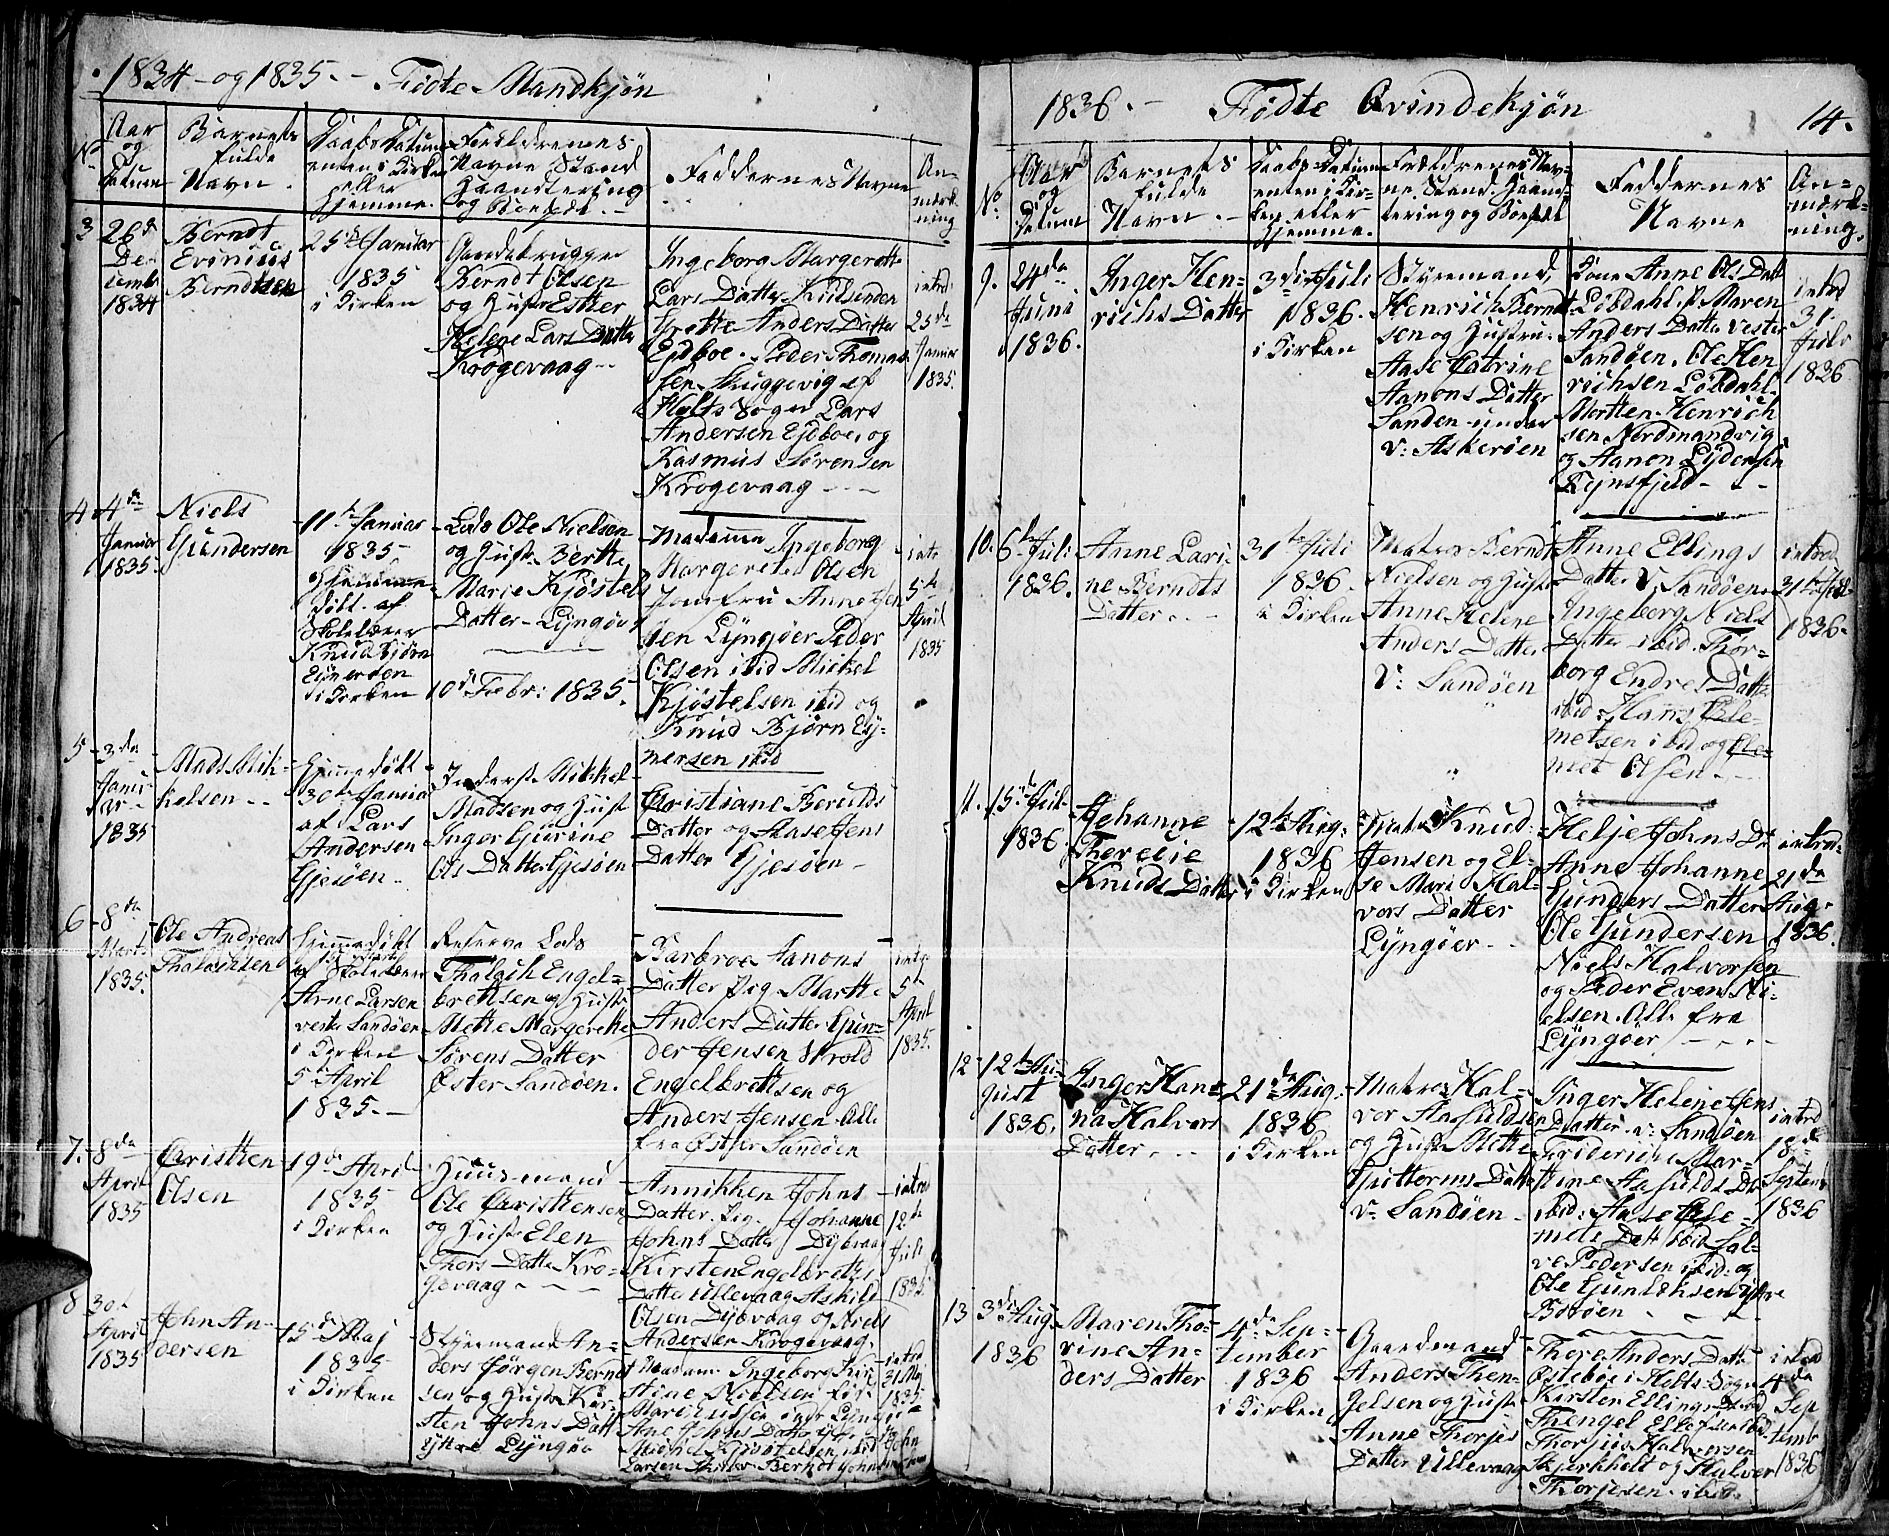 1834 og 1835. - Fødte Mandkjøn
No
Aar
og
Datum
Barnets
fulde
Navn.
Daabs Datum
enten i Kirken
eller
hjemme.
Forældrenes
Navne Stand
Haandtering
og Bopæl. -
Faddernes Navne
An-
mærk-
ning
3
26d
De-
cemb
1834
Berndt
Evinius
Berndtsen
25de Januar
1835
i Kirken
Gaardebruger
Berndt Olsen
og Hustr Ester
Helene Lars Datter
Krogevaag -
Ingeborg Margerethe
Lars Datter
Grethe Anders Datter
Ejdboe. Peder Thomas-
sen Skuggevig af
Holts Sogn Lars
Andersen Ejdboe, og
Rasmus Sørensen
Krogevaag - -
introd
25de
Januar
1835.
4
4de
Januar
1835.
Niels
Gundersen
11te Januar
1835
Hjemme
døbt af
Skolelærer
Knud Bjørn
Eynersen
i Kirken
Lods Ole Nielsen
og Hust. Berthe
Marie Kjøstels
Datter Lyngøer
10d Febr: 1835.
Madamme Ingeborg
Margerethe Olsen
Jomfru Anne Jen
sen Lyngøer Peder
Olsen ibid Mickel
Kjøstelsen ibid og
Knud Bjørn Ey-
nersen ibid
intr
5te
April
1835
5
3de
Janu-
ar
1835
Mads Mik-
kelsen -
Hjemmedøbt
30te Januar
af Lars
Andersen
Gjesøen.
Inderst Mikkel
Madsen og Hust
Inger Gurine
Ols Datter Gjesøen
Christiane Berulds
Datter og Aase Jens
Datter Gjesøen -
6
8de
Marts
1835.
Ole Andreas
Thalachsen
Hjemmedøbt
af Skolelærer
Arne Larsen
vester Sandøen
i Kirken
5te April
1835. -
Reserve Lods
Thalach Engel-
brethsen og Hustr
Mette Margerethe
Sørens Datter
Øster Sandøen.
Barbroe Aanons
Datter Pig Marthe
Anders Datter Gun-
der Jensen Arold
Engelbrethsen og
Anders Jensen Alle
fra Øster Sandøen
intr
5te
April
1835.
7.
8de
April
1835
Christen
Olsen
19de April
1835
i Kirken
Huusmand
Ole Christensen
og Hust Elen
Thors Datter Kro-
gevaag - -
Annikken Johns
Datter. Pig. Johanne
Johns Datter Dybvaag
Kirsten Engelbreths
Datter Ullevaag Askild
Olsen Dybvaag og Niels
Andersen Krogevaag.
intro
12te
Juli
1835
8
30te
April
1835
John An-
dersen
15de Maj
1835
i Kirken
Styremand An-
ders Jørgen Berndt
sen og Hustr Kir-
sten Johns Datt
yttre Lyngøe
Madam Ingeborg Kir-
stine Nielsen
Marie
Ane Johns Datter
Michel Kjøstelsen ibid
Larsen Berndt John
introd
31 Maj
1835
1836. - Fødte Qvindekjøn
14.
No
Aar
og
Datum
Barnets
fulde
Navn. -
Daabs-Datum
enten i Kir-
ken eller
hjemme.
Forældrenes Nav-
ne Stand. Haand-
tering og Bopæl
Faddernes
Navne
An-
mærk-
ning.
9.
24de
Juni
1836.
Inger Hen-
richs Datter
3die Juli
1836.
i Kirken
Styremand,
Henrich Berndt
sen og Hustru
Aase Catrine
Aanons Datter
Sanden under
V: Askerøen
Kone Anne Ols Datt
Løbdahl. P. Maren
Anders Datter Vester
Sandøen. Ole Hen
richsen Løbdahl.
Morten Henrich
sen Nordmandvig
og Aanon Lydersen
introd
31
Juli
1836
10.
6te Juli
1836.
Anne Lari-
ne Berndts
Datter. -
31te Juli
1836.
i Kirken
Matros Berndt
Nielsen og Hustr
Anne Helene
Anders Datter
V: Sandøen
Anne Ellings
Datter V. Sandøen
Ingeborg Niels
Datter ibid Thor-
borg Endres Datter
ibid. Hans Cle-
metsen ibid og Cle-
met Olsen. -
introd
31te Juli
1836.
11.
15de Juli
1836.
Johanne
Therecie
Knuds Datter
12te Aug:
1836
i Kirken
Matros Knud
Jensen og El-
se Mari Hal-
vors Datter
Lyngøer -
Helje Johns Dr
Anne Johanne
Gunders Datter
Ole Gundersen
Niels Halvorsen
og Peder Even Ni-
elsen. Alle fra
Lyngøer
introd
21de
Aug.
1836.
12
12te Au-
gust
1836.
Inger Han-
na Halvors
Datter. -
21de Aug.
1836
i Kirken
Matros Hal-
vor Aasuldsen
og Hust Mette
Guttorms Datter
V: Sandøen -
Inger Helene Jens
Datter. V: Sandøen
Frideriene Mar-
thine Aasulds Dr
ibid. Aase Cle-
mets Datt ibid Sal-
ve Pedersen ibid. og
Ole Gunlchsen Ytre
Botøen
introd
18de
Septemb
1836
13
3die Aug.
1836
Maren Tho-
rine An-
ders Datter
4de Sep-
tember
1836
i Kirken
Gaardmand
Anders Then-
gelsen og Hust
Anne Thorjus
Datter Ullevaag
Thore Anders Datt
Østeboe i Holts Sogn
Kirsten Ellings Datt
Thengel Ellefsen ibid
Thorjus Halvorsen
Skjerkholt og Halvor
Thorjusen. ibid.
introd
4de
Sep
temb
1836